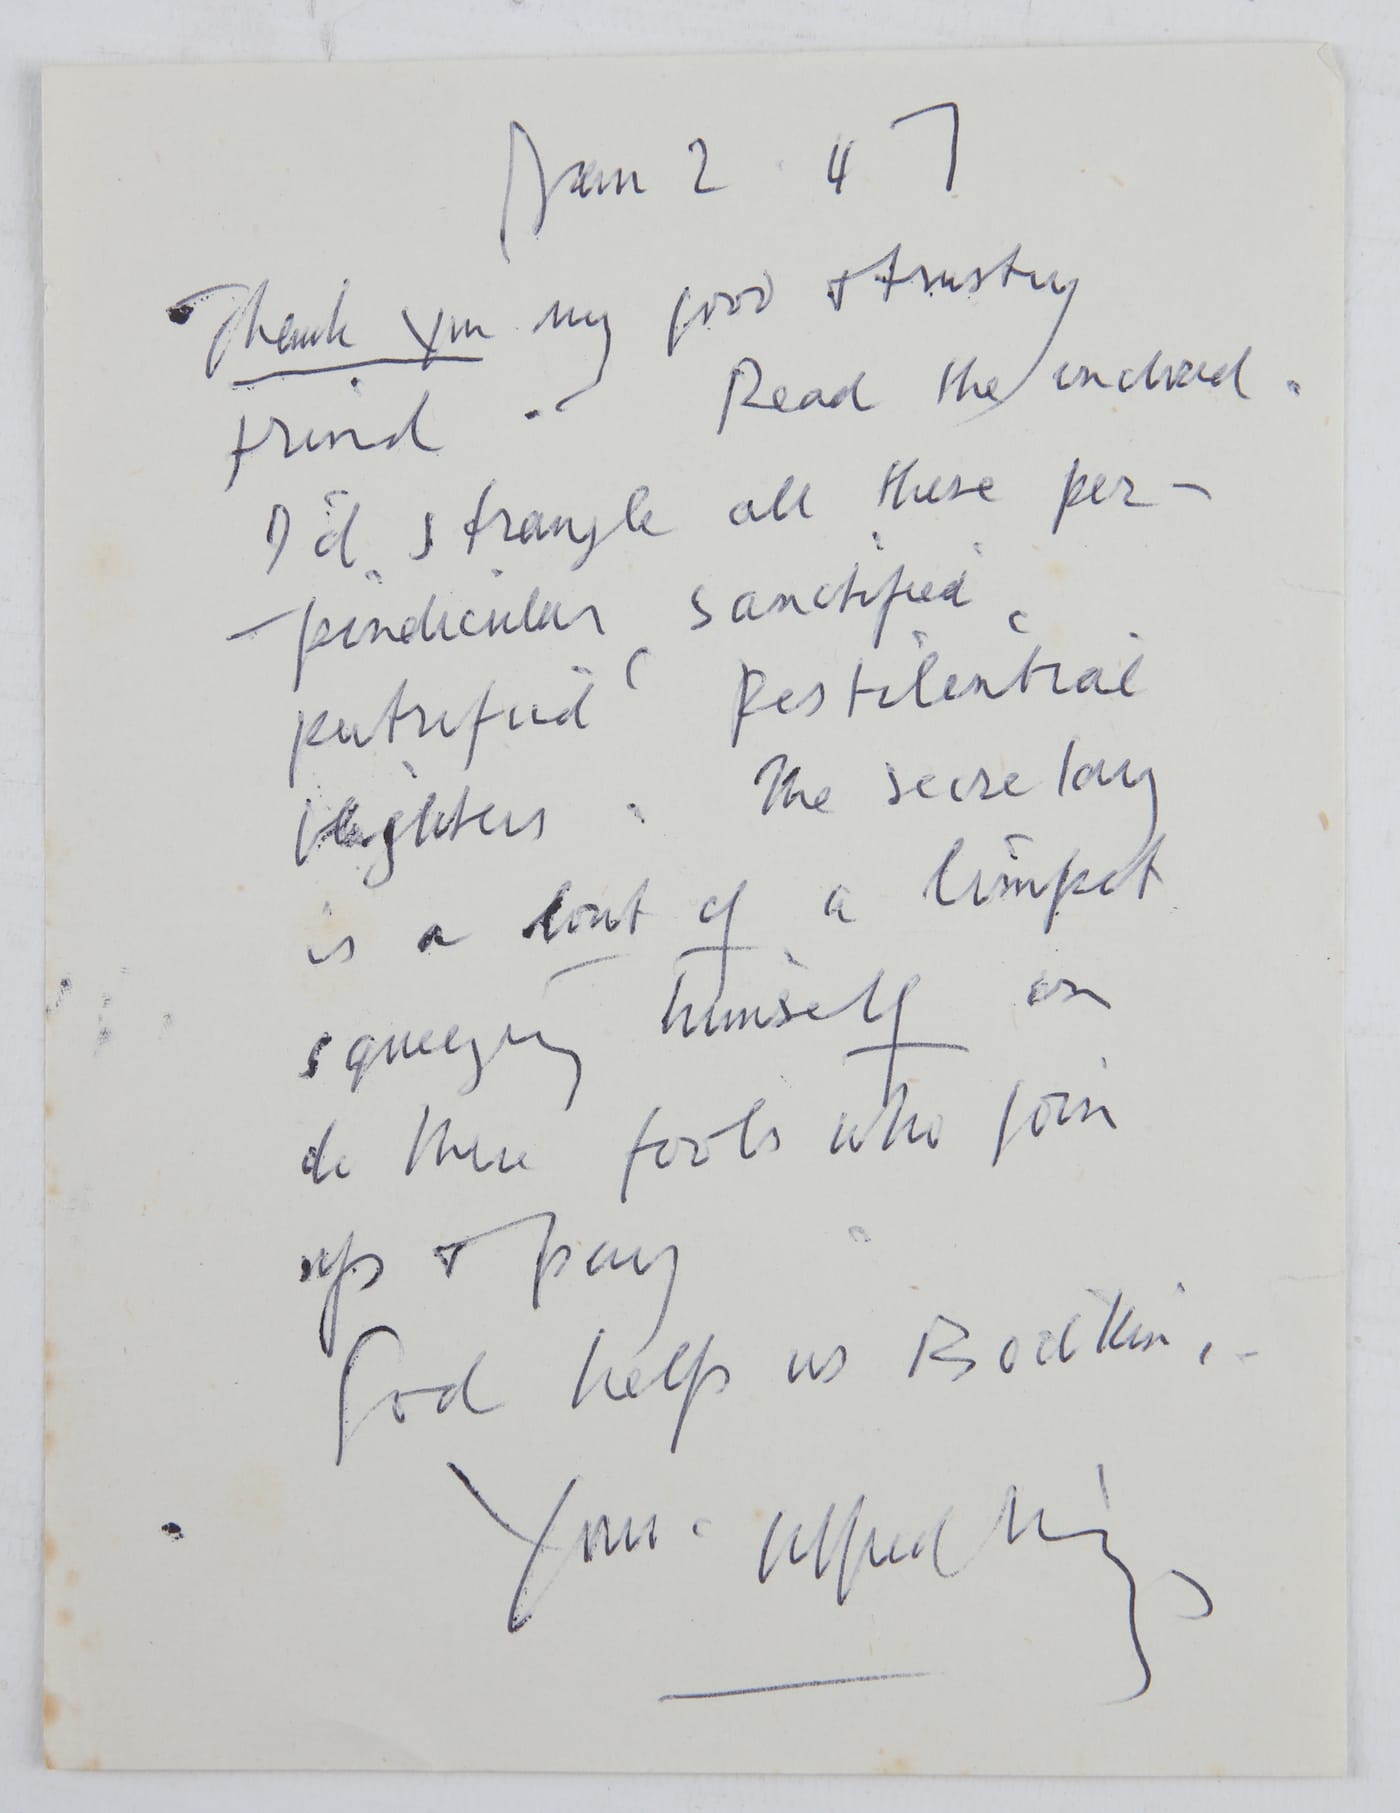 Jan 2. 47
Thank you my good & trusty
friend. - Read the enclosed.
I'd strangle all these per-
-pendicular, sanctified,
putrified, pestilential
blighters. The secretary
is a lout of a limpet
squeezing himself on
to these fools who join
up & pay
God help us Bodkin. -
Your. Alfred